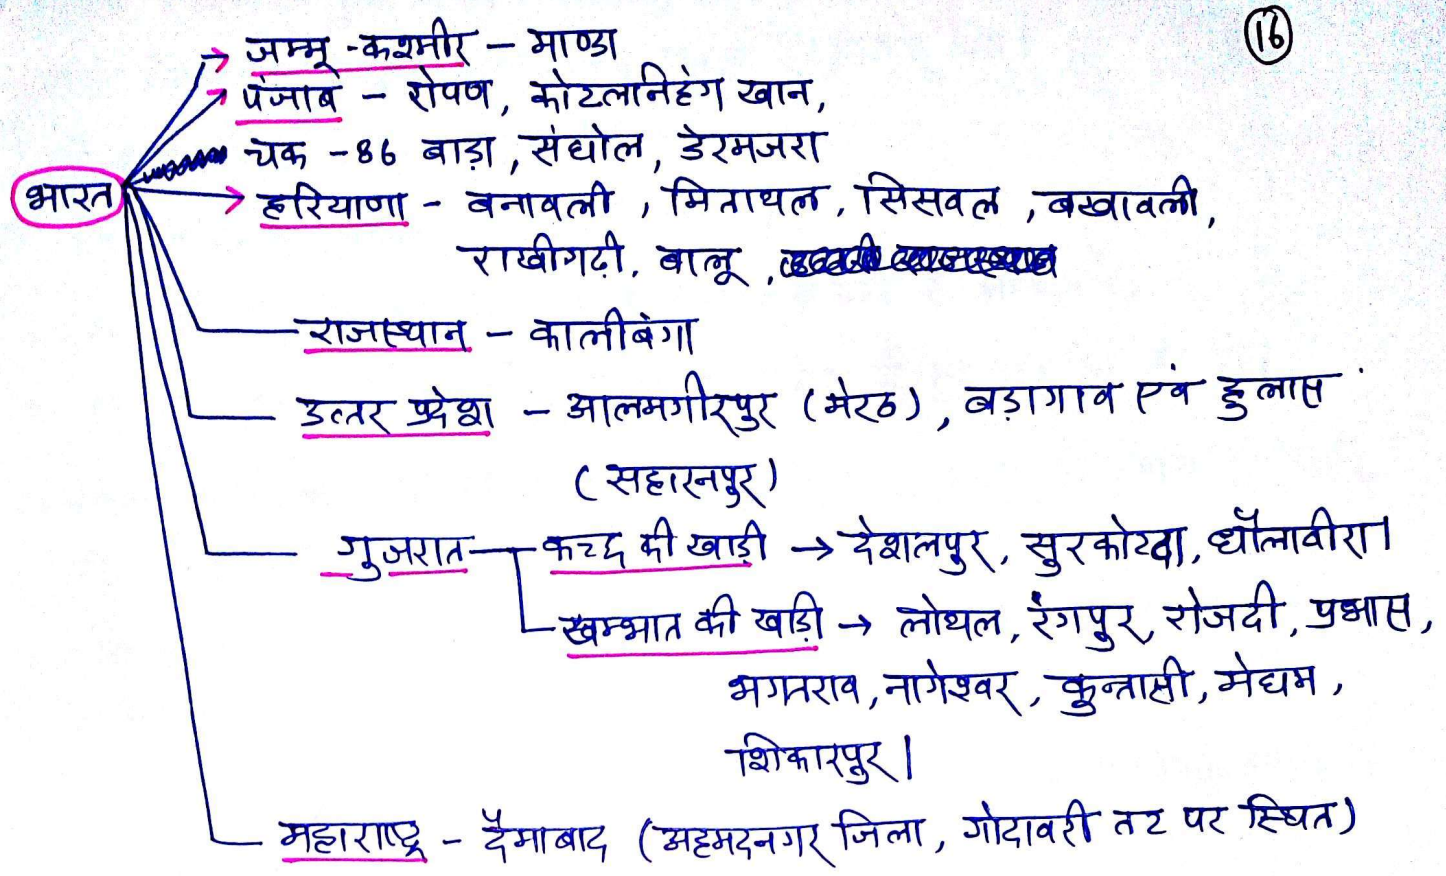 (16)
जम्मू-कश्मीर – माण्डा
पंजाब – रोपण, कोटलानिहंग खान,
चक -86 बाड़ा, संघोल, डेरमजरा
भारत
हरियाणा - बनावली, मिताथल, सिसवल, बखावली,
राखीगढ़ी, बालू,
राजस्थान – कालीबंगा
उत्तर प्रदेश – आलमगीरपुर (मेरठ), बड़ागाव एवं हुलास
(सहारनपुर)
गुजरात कच्छ की खाड़ी → देशलपुर, सुरकोटदा, धौलावीरा।
खम्भात की खाड़ी → लोथल, रंगपुर, रोजदी, प्रभास,
भगतराव, नागेश्वर, कुन्तासी, मेघम,
शिकारपुर।
महाराष्ट्र - दैमाबाद (अहमदनगर जिला, गोदावरी तट पर स्थित)